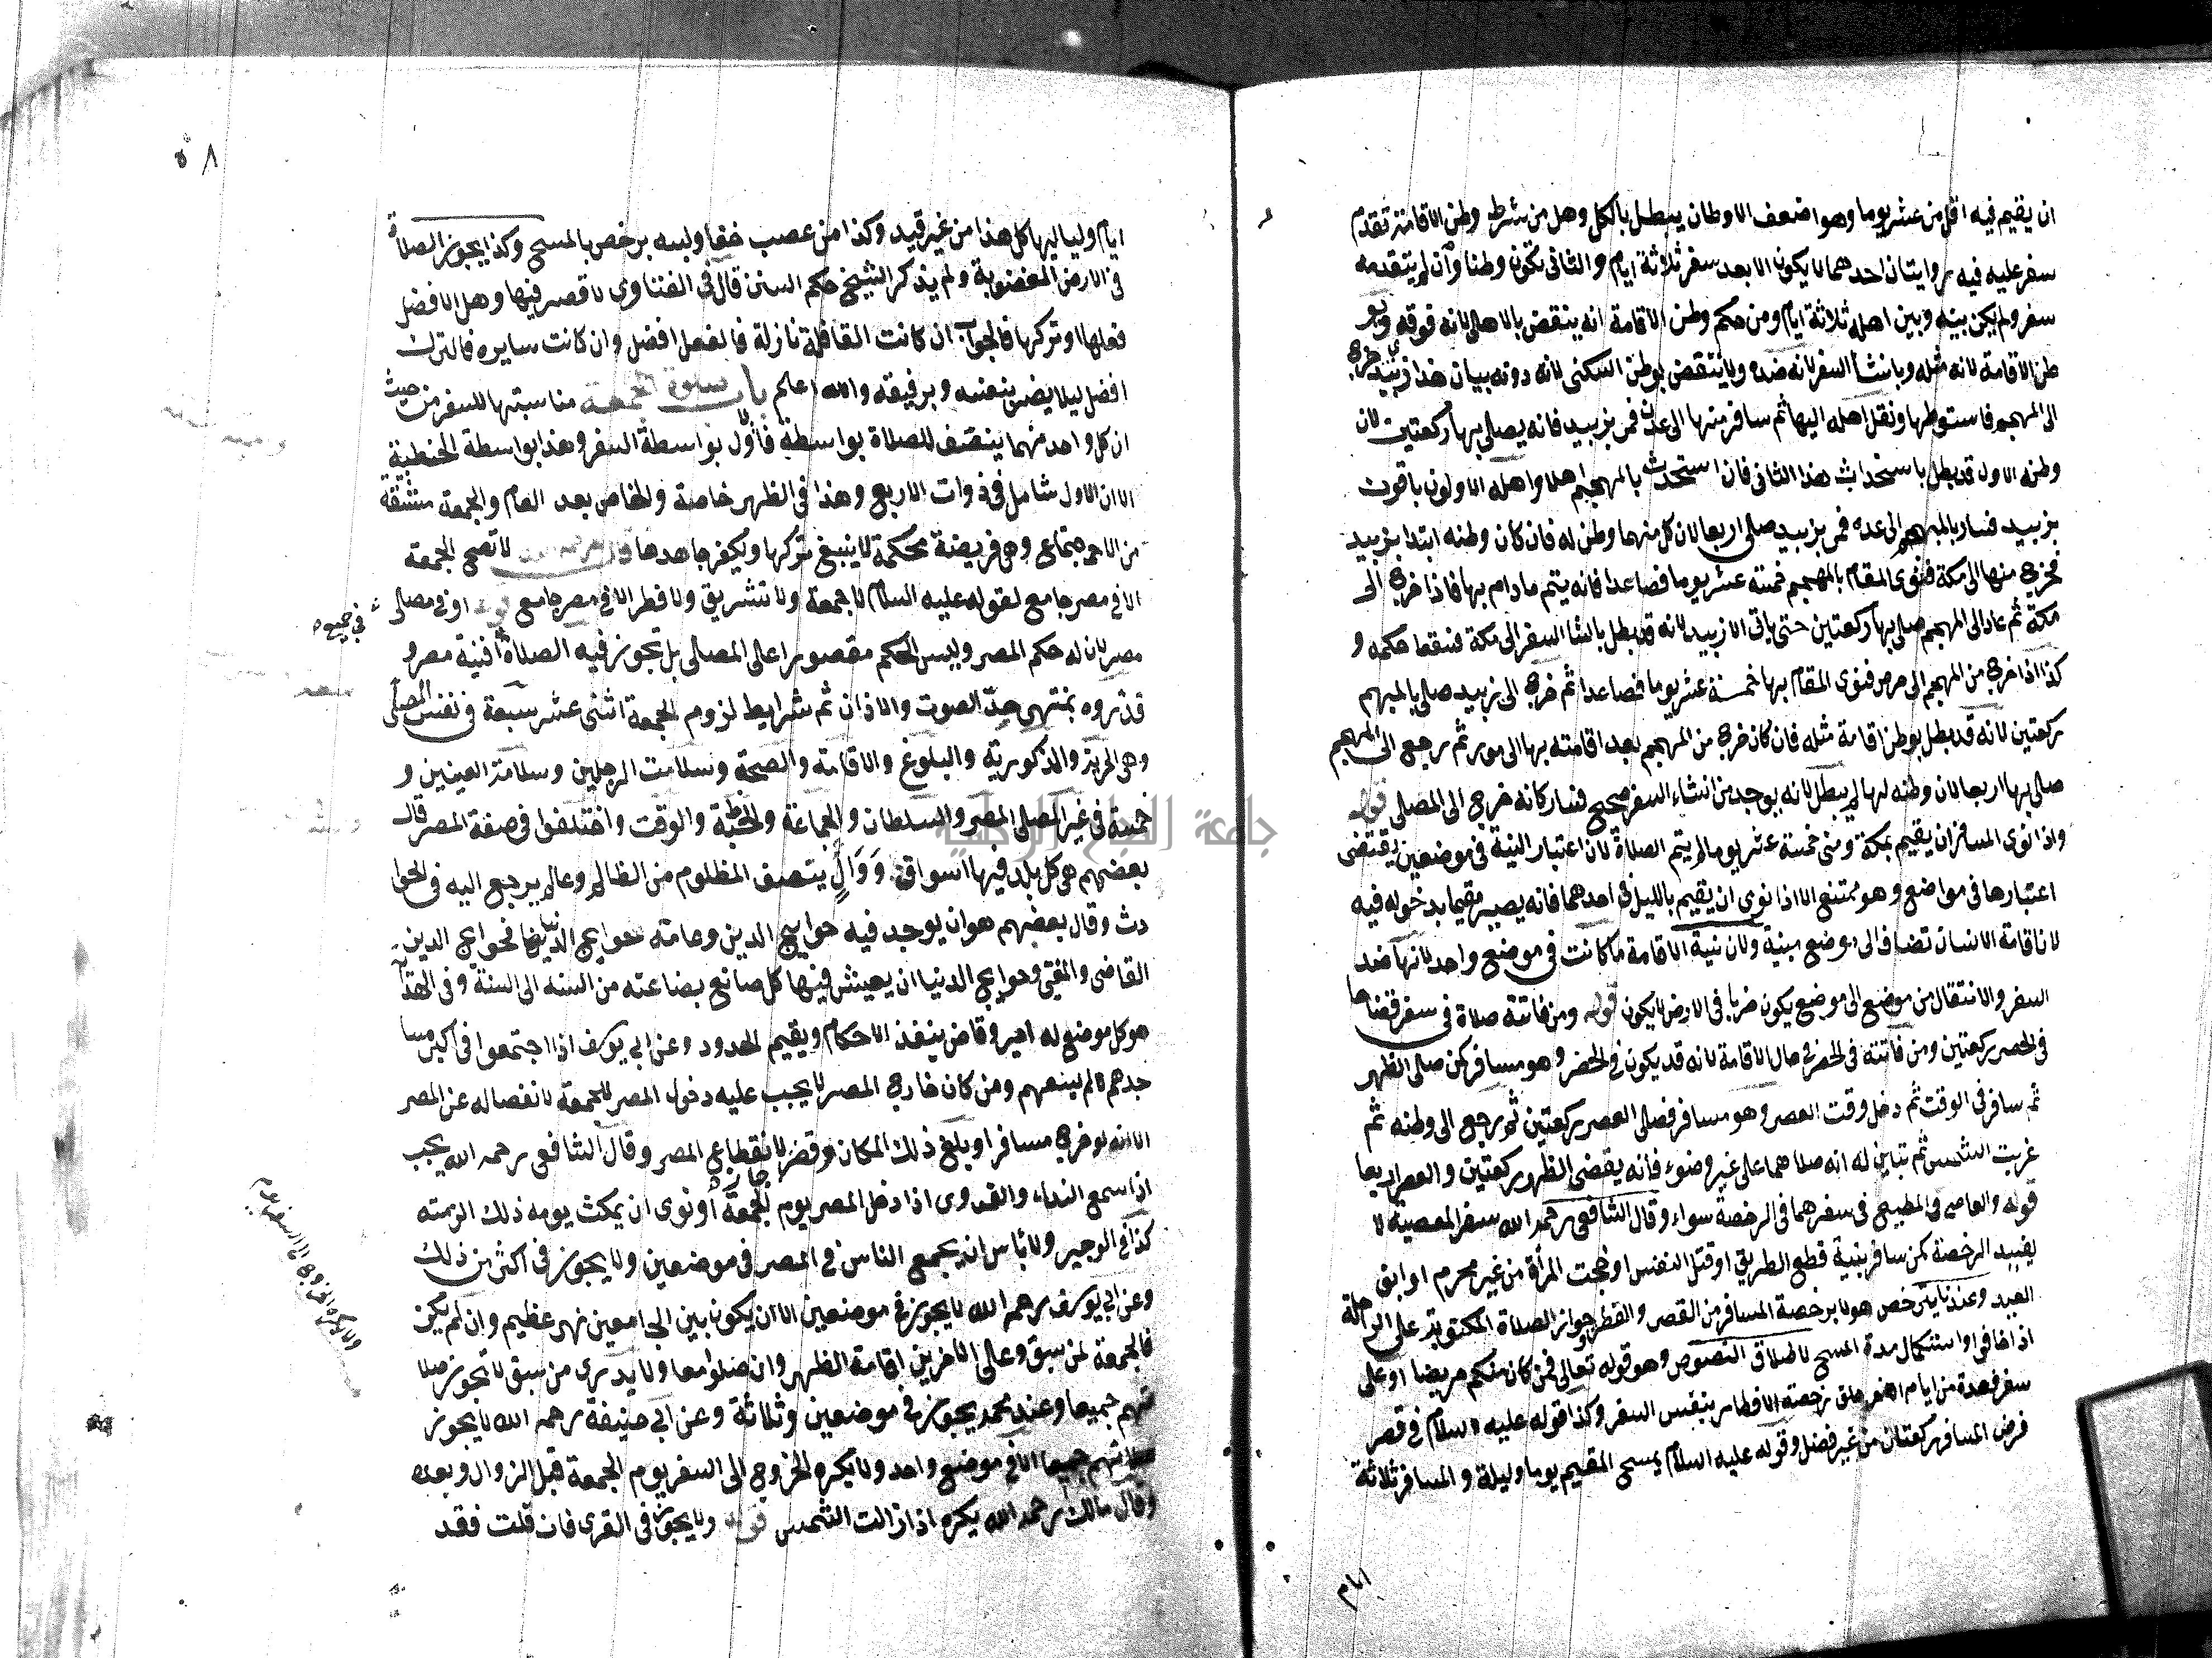 ان يقيم فيه اقل من عشر يوما وهو اضعف الاوطان يبطل بالكل وهل من شرط وطن الاقامة تقدم
سفر عليه فيه روايتان احدهما لا يكون الا بعد سفر ثلاثة ايام والثانى تكون وطنا وان لم يتقدمه
سفر ولم يكن بينه وبين اهله ثلاثة ايام ومن حكم وطن الاقامة انه ينقض بالاهلى لانه فوقه وبو
طن الاقامة لانه مثله وبانشأ السفر لانه ضده ولا ينتقض بوطن السكنى لانه دونه بيان هذا زبيدى خرج
الى المهجم فاستوطنها ونقل اهله اليها ثم سافر منها الى عدن فمر بزبيد فانه يصلى بها ركعتين لان
وطنه الاول قد بطل باستحداث هذا الثانى فان استحدث بالمهجم اهلا واهله الاولون باقون
بزبيد فسار بالمهجم الى عدن فمر بزبيد صلى اربعا لان كل منهما وطن له فان كان وطنه ابتدا بزبيد
فخرج منها الى مكة فنوى المقام بالمهجم خمسة عشر يوما فصاعدا فانه يتم مادام بها فاذا خرج الى
مكة ثم عاد الى المهجم صلى بها ركعتين حتى ياتى الا زبيد لانه قد بطل بانشا السفر الى مكة فسقط حكمه و
كذا اذا خرج من المهجم الى مرض فنوى المقام بها خمسة عشر يوما فصاعدا ثم خرج الى زبيد صلى بالمهجم
ركعتين لانه قد بطل بوطن اقامة مثله فان كان خرج من المهجم بعد اقامته بها الى مور ثم رجع الى المهجم
صلى بها اربعا لان وطنه لها لم يبطل لانه يوجد من انشاء السفر صحيح فسار كانه خرج الى المصلى قوله
واذا نوى المسافر ان يقيم بمكة ومنى خمسة عشر يوما لم يتم الصلاة لان اعتبار النية فى موضعين يقتضى
اعتبارها فى مواضع وهو ممتنع الا اذا نوى ان يقيم بالليل فى احدهما فانه يصير مقيما بدخوله فيه
لان اقامة الانسان تضاف الى موضع مبيته ولان نية الاقامة ما كانت فى موضع واحد لانها ضد
السفر والانتقال من موضع الى موضع يكون ضربا فى الارض لا يكون قوله ومن فاتته صلاة فى سفر قضاها
فى الحضر ركعتين ومن فاتته فى الحضر فى حال الاقامة لانه قد يكون فى الحضر وهو مسافر كمن صلى الظهر
ثم سافر فى الوقت ثم دخل وقت العصر وهو مسافر فصلى العصر ركعتين ثم رجع الى وطنه ثم
غربت الشمس ثم تباين له انه صلاهما على غير وضوء فانه يقضى الظهر ركعتين والعصر اربعا
قوله والعاصى والمطيع فى سفرهما فى الرخصة سواء وقال الشافعى رحمه الله سفر المعصية لا
يفيد الرخصة كمن سافر بنية قطع الطريق او قتل النفس او حجت المرأة من غير محرم او ابق
العبد وعندنا يترخص هولا برخصة المسافر من القصر والفطر وجواز الصلاة المكتوبة على الراحلة
اذا خافى واستكمال مدة المسح لاطلاق النصوص وهو قوله تعالى فمن كان منكم مريضا او على
سفر فعدة من ايام اخر علق رخصة الافطار بنفس السفر وكذا قوله عليه السلام فى قصر
فرض المسافر ركعتان من غير فضل وقوله عليه السلام يمسح المقيم يوما وليلة والمسافر ثلاثة
ايام
٥٨
ايام ولياليها كل هذا من غير قيد وكذا من غصب خفا ولبسه يرخص بالمسح وكذا يجوز الصلاة
فى الارض المغصوبة ولم يذكر الشيخ حكم السنن قال فى الفتاوى لا قصر فيها وهل الافضل
فعلها او تركها فالجواب ان كانت القافلة نازلة فالفعل افضل وان كانت سايره فالترك
افضل ليلا يضر بنفسه وبرفيقه والله اعلم باب صلوة الجمعة مناسبتها للسفر من حيث
ان كل واحد منهما ينصف للصلاة بواسطة فالاول بواسطة السفر وهذا بواسطة الخطبة
الا ان الاول شامل فى ذوات الاربع وهذا فى الظهر خاصة والخاص بعد العام والجمعة مشتقة
من الاجتماع وهى فريضة محكمة لا ينبغ تركها ويكفر جاحدها لا تصح الجمعة
الا فى مصر جامع لقوله عليه السلام لا جمعة ولا تشريق ولا فطر الا فى مصر جامع قوله او فى مصلى
فى جميع
مصر لان له حكم المصر وليس الحكم مقصورا على المصلى بل تجوز فيه الصلاة افنية مصر و
قدروه بمنتهى حد الصوت والاذان ثم شرايط لزوم الجمعة اثنى عشر سبعة فى نفس المصلى
وهى الحرية والذكورية والبلوغ والاقامة والصحة وسلامت الرجلين وسلامة العينين و
خمسة فى غير المصلى المصر والسلطان والجماعة والخطبة والوقت واختلفوا فى صفة المصر قال
بعضهم هى كل بلد فيها اسواق ووال ينتصف المظلوم من الظالم وعالم يرجع اليه فى الحوا
دث وقال بعضهم هو ان يوجد فيه حوايج الدين وعامته حوايج الدنيا فحوايج الدين
القاضى والمفتى وحوايج الدنيا ان يعيش فيها كل صانع بصناعته من السنه الى السنة وفى الهداية
هو كل موضع له امير وقاض ينفذ الاحكام ويقيم الحدود وعن ابى يوسف اذا اجتمعوا فى اكبر مسا
جدهم لم يسعهم ومن كان خارج المصر لا يجب عليه دخول المصر للجمعة لانفصاله عن المصر
الا انه لو خرج مسافرا وبلغ ذلك المكان وقصر لانقطاع المصر وقال الشافعى رحمه الله يجب
اذا سمع النداء والقدوى اذا دخل المصر يوم الجمعة او نوى ان يمكث يومه ذلك الزمته
كذا فى الوجيز ولا باس ان يجمع الناس فى المصر فى موضعين ولا يجوز فى اكثر من ذلك
وعن ابى يوسف رحمه الله لا يجوز فى موضعين الا ان يكون بين الجامعين نهر عظيم وان لم يكن
فالجمعة لمن سبق وعلى الاخرين اقامة الظهر وان صلوا معا ولا يدرى من سبق لا تجوز صلا
تهم جميعا وعند محمد يجوز فى موضعين وثلاثة وعن ابى حنيفة رحمه الله لا يجوز
صلاتهم جميعا الا فى موضع واحد ولا يكره الخروج الى السفر يوم الجمعة قبل الزوال وبعده
وقال مالك رحمه الله يكره اذا زالت الشمس قوله ولا يجوز فى القرى فان قلت فقد
ولا يكره الخروج الى السفر يوم
جامعة النجاح الوطنية